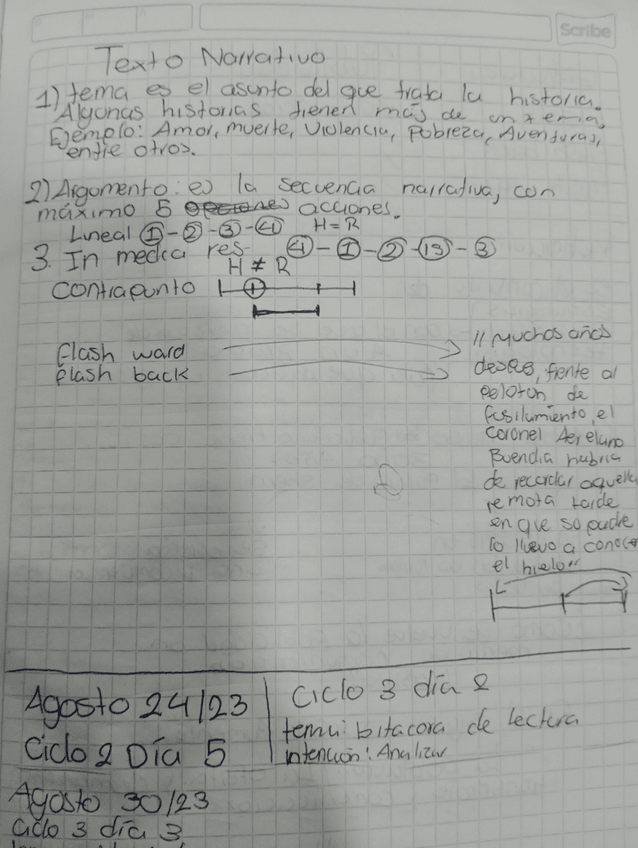 Scribe
Texto Narrativo
1) tema es el asunto del que trata la historia.
Algunas historias tienen más de un tema,
Ejemplo: Amor, muerte, Violencia, Pobreza, Aventuras,
entre otros.
2) Argumento: es la secuencia narrativa, con
máximo 5 acciones.
Lineal 1-2-3-4 H=R
3. In media res 4-1-2-13-3
H ≠ R
Contrapunto
flash ward
flash back
"Muchos años
despues, frente al
peloton de
fusilamiento, el
Coronel Aureliano
Buendia habria
de recordar aquella
remota tarde
en que su padre
lo llevo a conocer
el hielo"
Agosto 24/23
Ciclo 2 Día 5
Ciclo 3 día 2
tema: bitacora de lectura
intención: Analizar
Agosto 30/23
Ciclo 3 día 3